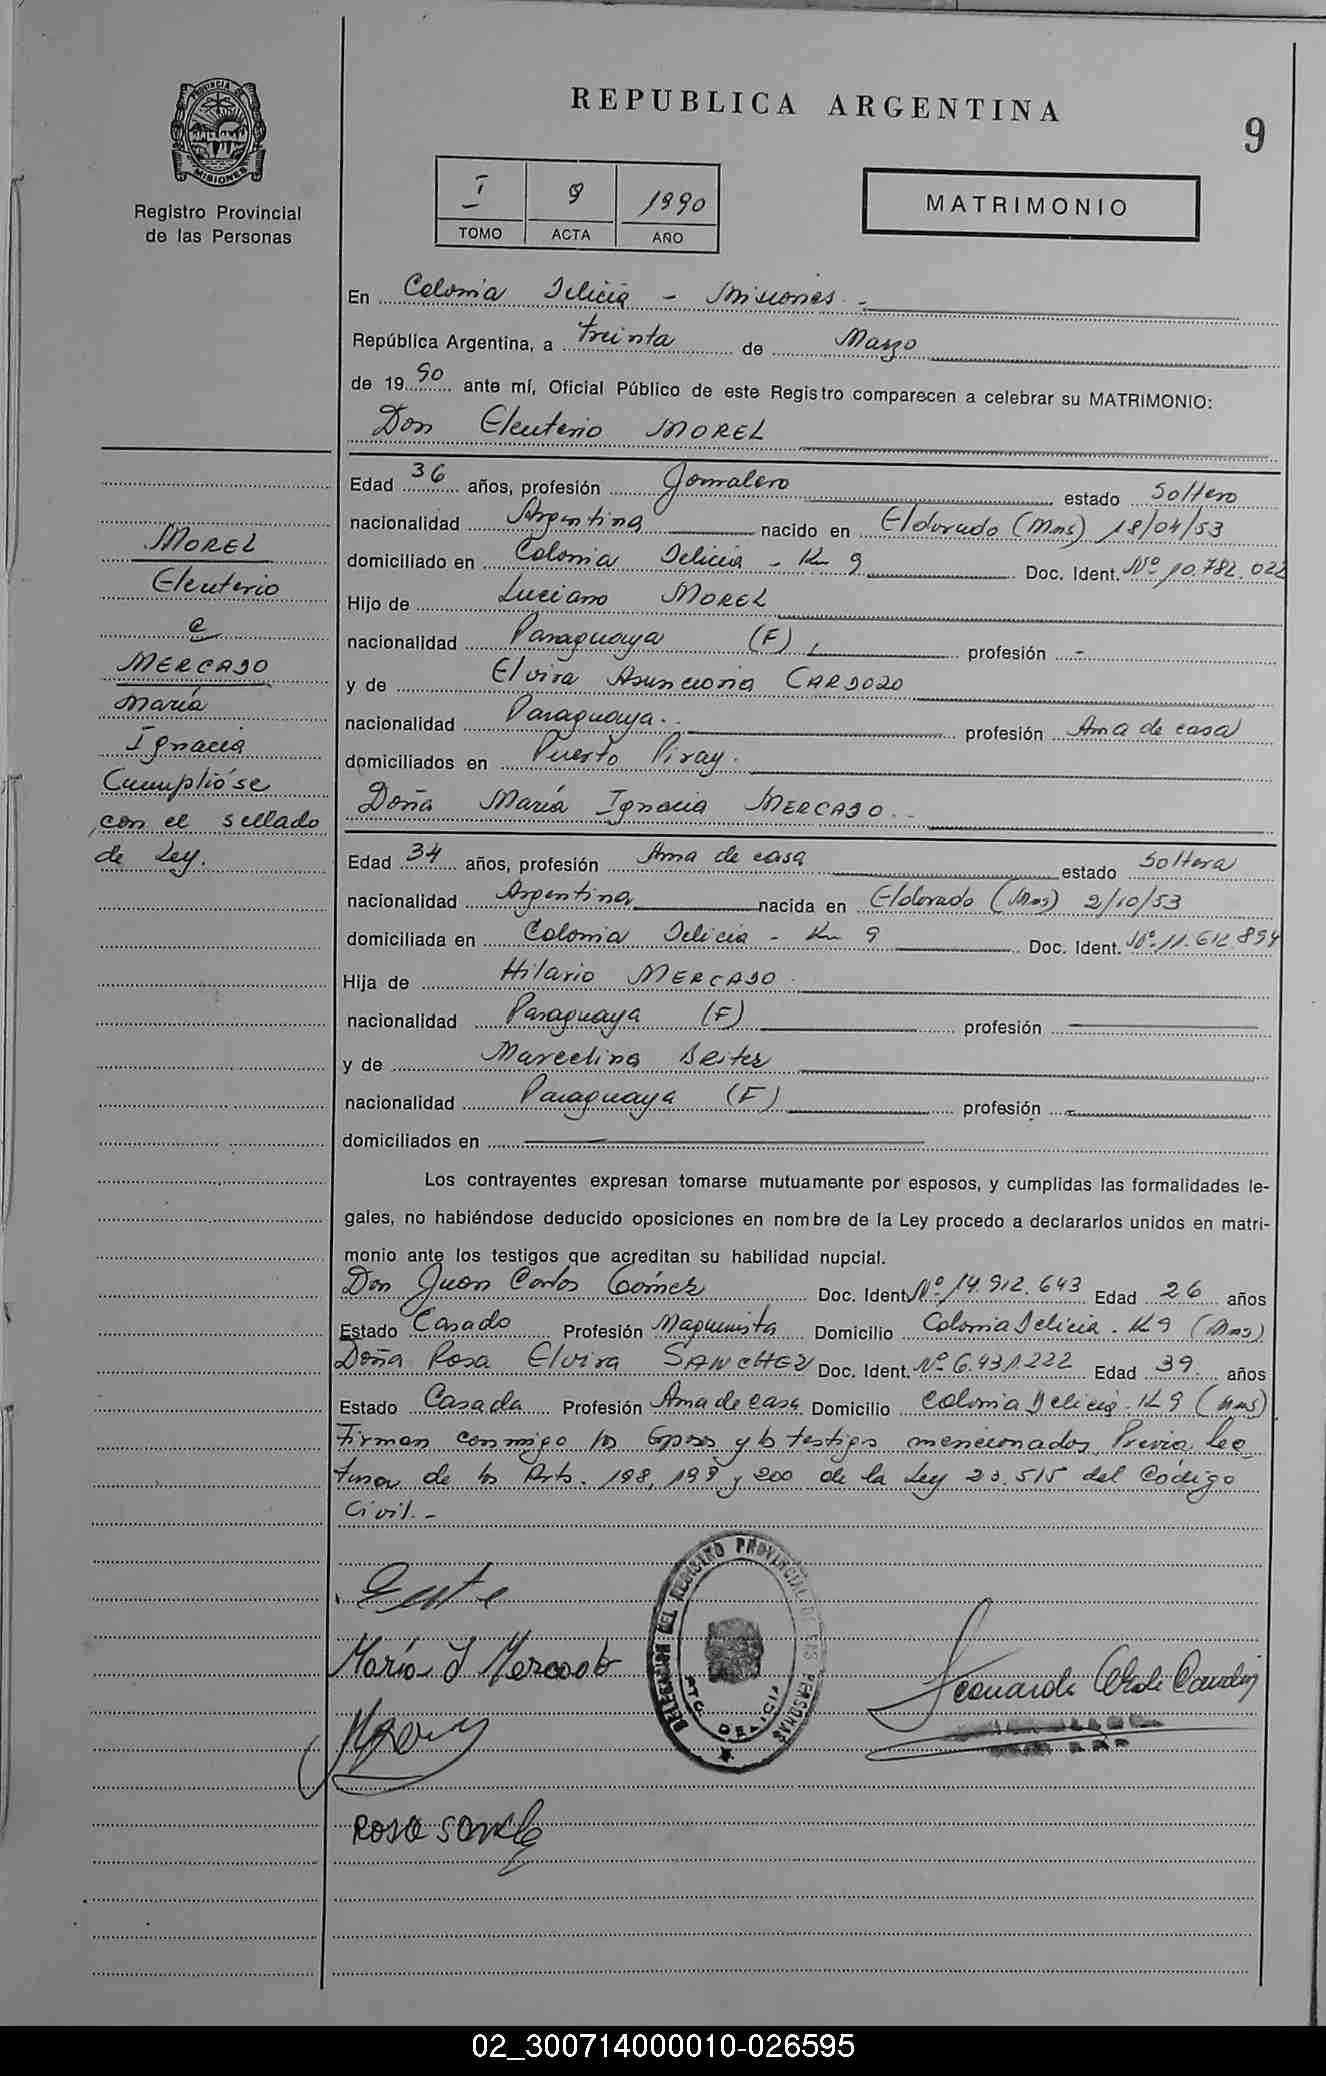 REPUBLICA ARGENTINA
9
PROVINCIA DE
MISIONES
Registro Provincial
de las Personas
I 9 1990
TOMO ACTA AÑO
MATRIMONIO
En Colonia Delicia - Misiones.-
República Argentina, a treinta de Marzo
de 1990 ante mí, Oficial Público de este Registro comparecen a celebrar su MATRIMONIO:
Don Eleuterio MOREL
Edad 36 años, profesión Jornalero estado Soltero
nacionalidad Argentina nacido en Eldorado (Mns) 18/04/53
domiciliado en Colonia Delicia - Km 9 Doc. Ident. Nº 10.782.022
Hijo de Luciano MOREL
nacionalidad Paraguaya (F) profesión -
y de Elvira Asunciona CARDOZO
nacionalidad Paraguaya.- profesión Ama de casa
domiciliados en Puerto Piray.
Doña María Ignacia MERCADO.-
Edad 34 años, profesión Ama de casa estado Soltera
nacionalidad Argentina nacida en Eldorado (Mns) 2/10/53
domiciliada en Colonia Delicia - Km 9 Doc. Ident. Nº 11.612.894
Hija de Hilario MERCADO
nacionalidad Paraguaya (F) profesión
y de Marcelina Britez
nacionalidad Paraguaya (F) profesión
domiciliados en
MOREL
Eleuterio
e
MERCADO
María
Ignacia
Cumplió'se
con el sellado
de Ley.
Los contrayentes expresan tomarse mutuamente por esposos, y cumplidas las formalidades le-
gales, no habiéndose deducido oposiciones en nombre de la Ley procedo a declararlos unidos en matri-
monio ante los testigos que acreditan su habilidad nupcial.
Don Juan Carlos Gómez Doc. Ident. Nº 14.912.643 Edad 26 años
Estado Casado Profesión Maquinista Domicilio Colonia Delicia. K 9 (Mns)
Doña Rosa Elvira SANCHEZ Doc. Ident. Nº 6.431.222 Edad 39 años
Estado Casada Profesión Ama de casa Domicilio Colonia Delicia. K 9 (Mns)
Firman conmigo los Esposos y los testigos mencionados Previa lec-
tura de los Arts. 198, 199 y 200 de la Ley 23.515 del Código
Civil.-
María I Mercado
DELEGACION DEL REGISTRO PROVINCIAL DE LAS PERSONAS
PTO. DELICIA
Rosa
02_300714000010-026595